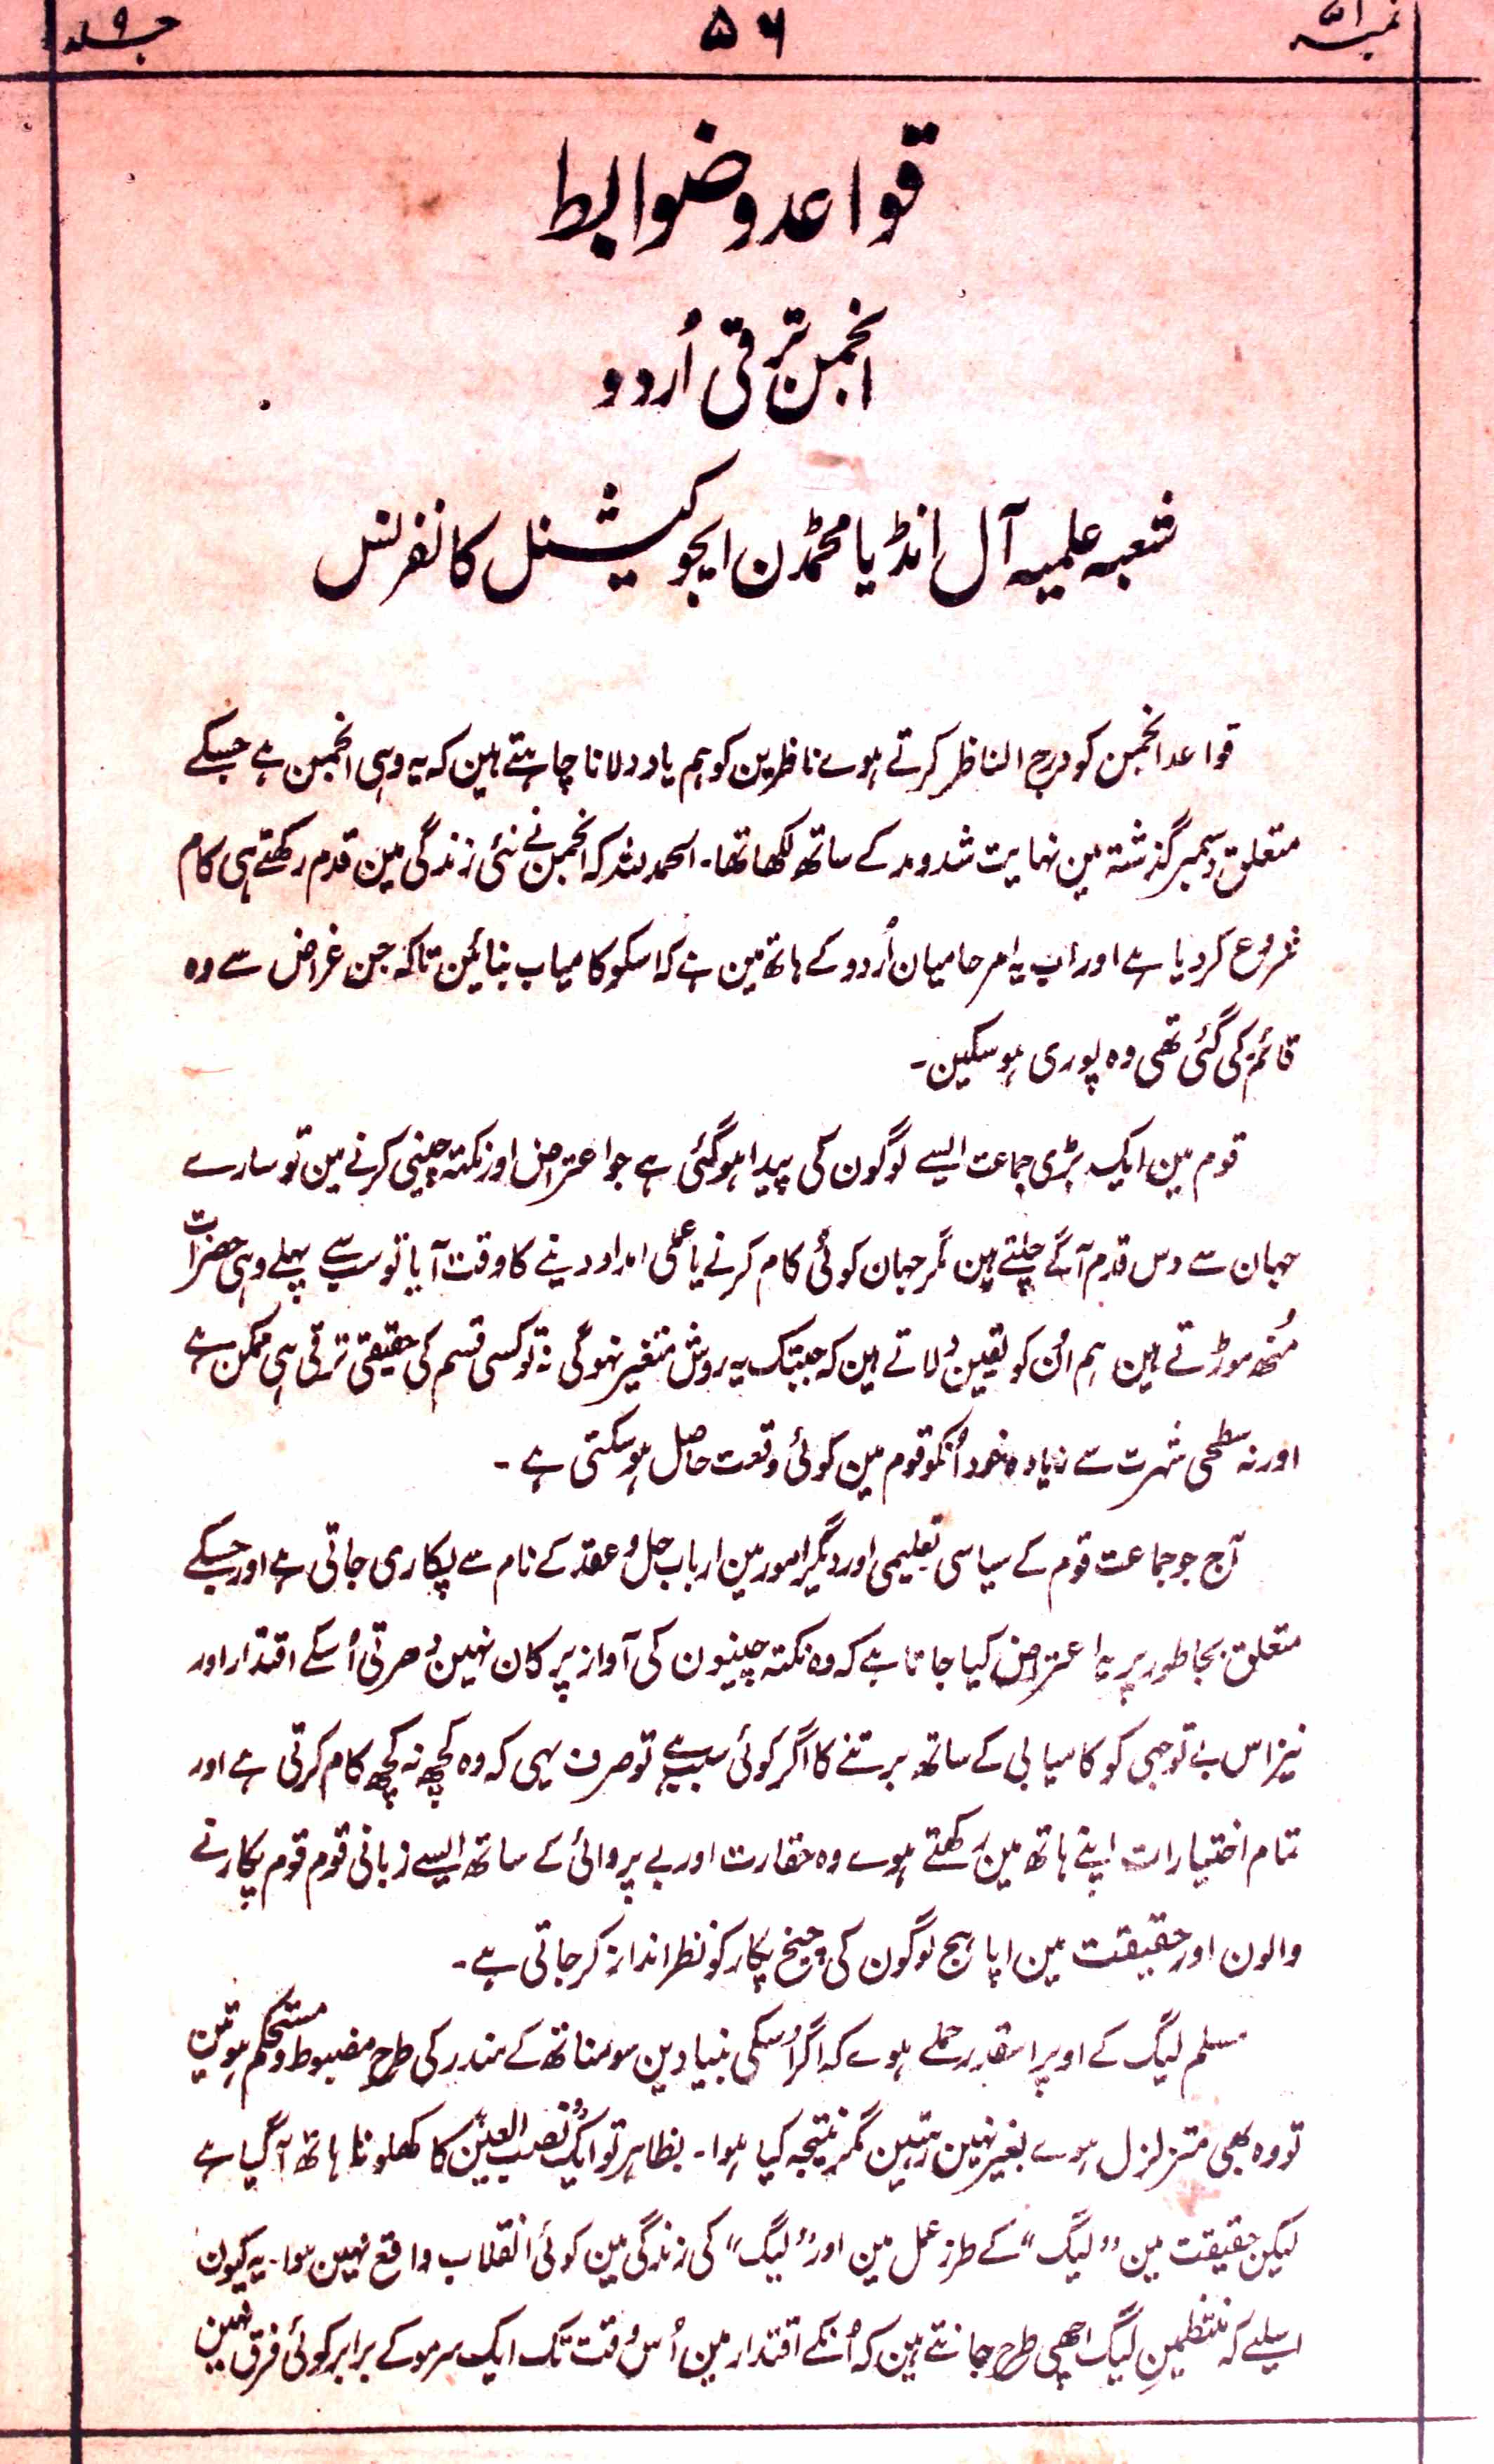 نمبر ۵۱ ۵۶ جلد ۹
قواعد و ضوابط
انجمن ترقی اُردو
شعبہ علمیہ آل انڈیا محمڈن ایجوکیشنل کانفرنس
قواعد انجمن کو درج الناظر کرتے ہوے ناظرین کو ہم یاد دلانا چاہتے ہین کہ یہ وہی انجمن ہے جسکے
متعلق دسمبر گذشتہ مین نہایت شد و مد کے ساتھ لکھا تھا۔ الحمد للہ کہ انجمن نے نئی زندگی مین قدم رکھتے ہی کام
شروع کردیا ہے اور اب یہ امر حامیان اُردو کے ہاتھ مین ہے کہ اسکو کامیاب بنائین تاکہ جن غراض سے وہ
قائم کی گئی تھی وہ پوری ہوسکین۔
قوم مین ایک بڑی جماعت ایسے لوگون کی پیدا ہوگئی ہے جو اعتراض اور نکتہ چینی کرنے مین تو سارے
جہان سے دس قدم آگے چلتے ہین مگر جہان کوئی کام کرنے یا عملی امداد دینے کا وقت آیا تو سب سے پہلے وہی حضرات
مُنھ موڑتے ہین ہم اُن کو یقین دلاتے ہین کہ جبتک یہ روش متغیر نہوگی نہ تو کسی قسم کی حقیقی ترقی ہی ممکن ہے
اور نہ سطحی شہرت سے زیادہ خود اُنکو قوم مین کوئی وقعت حاصل ہوسکتی ہے۔
آج جو جماعت قوم کے سیاسی تعلیمی اور دیگر امور مین ارباب حل و عقد کے نام سے پکاری جاتی ہے اور جسکے
متعلق بجا طور پر یہ اعتراض کیا جاتا ہے کہ وہ نکتہ چینیون کی آواز پر کان نہین دھرتی اُسکے اقتدار اور
نیز اس بے توجہی کو کامیابی کے ساتھ برتنے کا اگر کوئی سبب ہے تو صرف یہی کہ وہ کچھ نہ کچھ کام کرتی ہے اور
تمام اختیارات اپنے ہاتھ مین رکھتے ہوے وہ حقارت اور بے پروائی کے ساتھ ایسے زبانی قوم قوم پکارنے
والون اور حقیقت مین اپاہج لوگون کی چیخ پکار کو نظر انداز کرجاتی ہے۔
مسلم لیگ کے اوپر اسقدر حملے ہوے کہ اگر اُسکی بنیادین سومناتھ کے مندر کی طرح مضبوط و مستحکم ہوتین
تو وہ بھی متزلزل ہوے بغیر نہین رہتین مگر نتیجہ کیا ہوا۔ بظاہر تو ایک "نصب العین" کا کھلونا ہاتھ آگیا ہے
لیکن حقیقت مین "لیگ" کے طرز عمل مین اور "لیگ" کی زندگی مین کوئی انقلاب واقع نہین ہوا۔ یہ کیون
اسلیے کہ منتظمین لیگ اچھی طرح جانتے ہین کہ اُنکے اقتدار مین اُس وقت تک ایک سرمو کے برابر کوئی فرق نہین